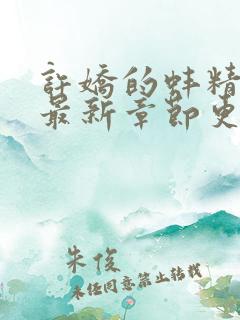 許嬌的蚌精
最新章節更
朱俊
未经同意禁止转载